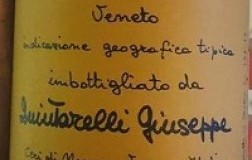 Veneto
indicazione geografica tipica
imbottigliato da
Quintarelli Giuseppe